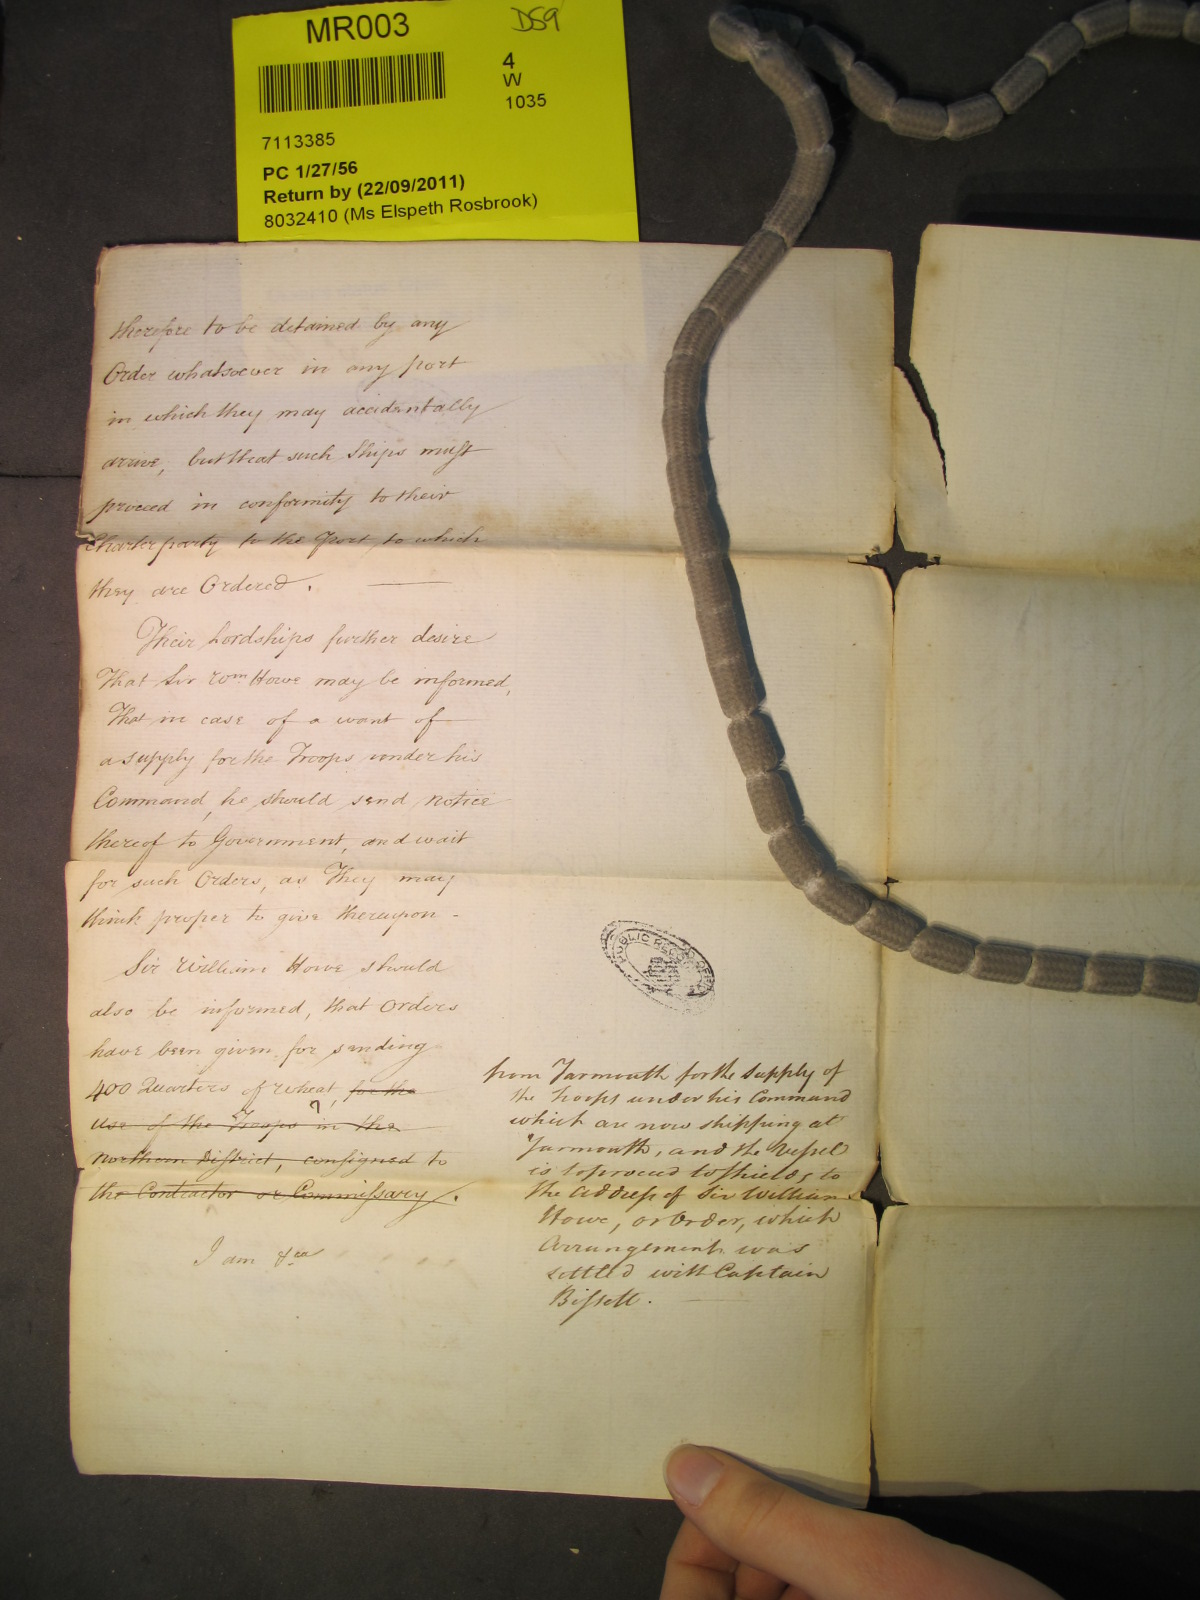 MR003
DS9
4
W
1035
7113385
PC 1/27/56
Return by (22/09/2011)
8032410 (Ms Elspeth Rosbrook)
therefore to be detained by any
Order whatsoever in any port
in which they may accidentally
arrive, but that such Ships must
proceed in conformity to their
Charterparty to the Port, to which
they are Ordered.
Their Lordships further desire
That Sir Wm Howe may be informed,
That in case of a want of
a supply for the Troops under his
Command, he should send notice
thereof to Government, and wait
for such Orders, as They may
think proper to give thereupon -
Sir William Howe should
also be informed, that Orders
have been given for sending
400 Quarters of wheat, for the
use of the Troops in the
Northern District, consigned to
the Contractor or Commissary.
I am &ca
PUBLIC RECORD OFFICE
from Yarmouth for the supply of
the troops under his Command
which are now shipping at
Yarmouth, and the Vessel
is to proceed to Shields to
the address of Sir William
Howe, or Order, which
Arrangement was
settled with Captain
Bissett.